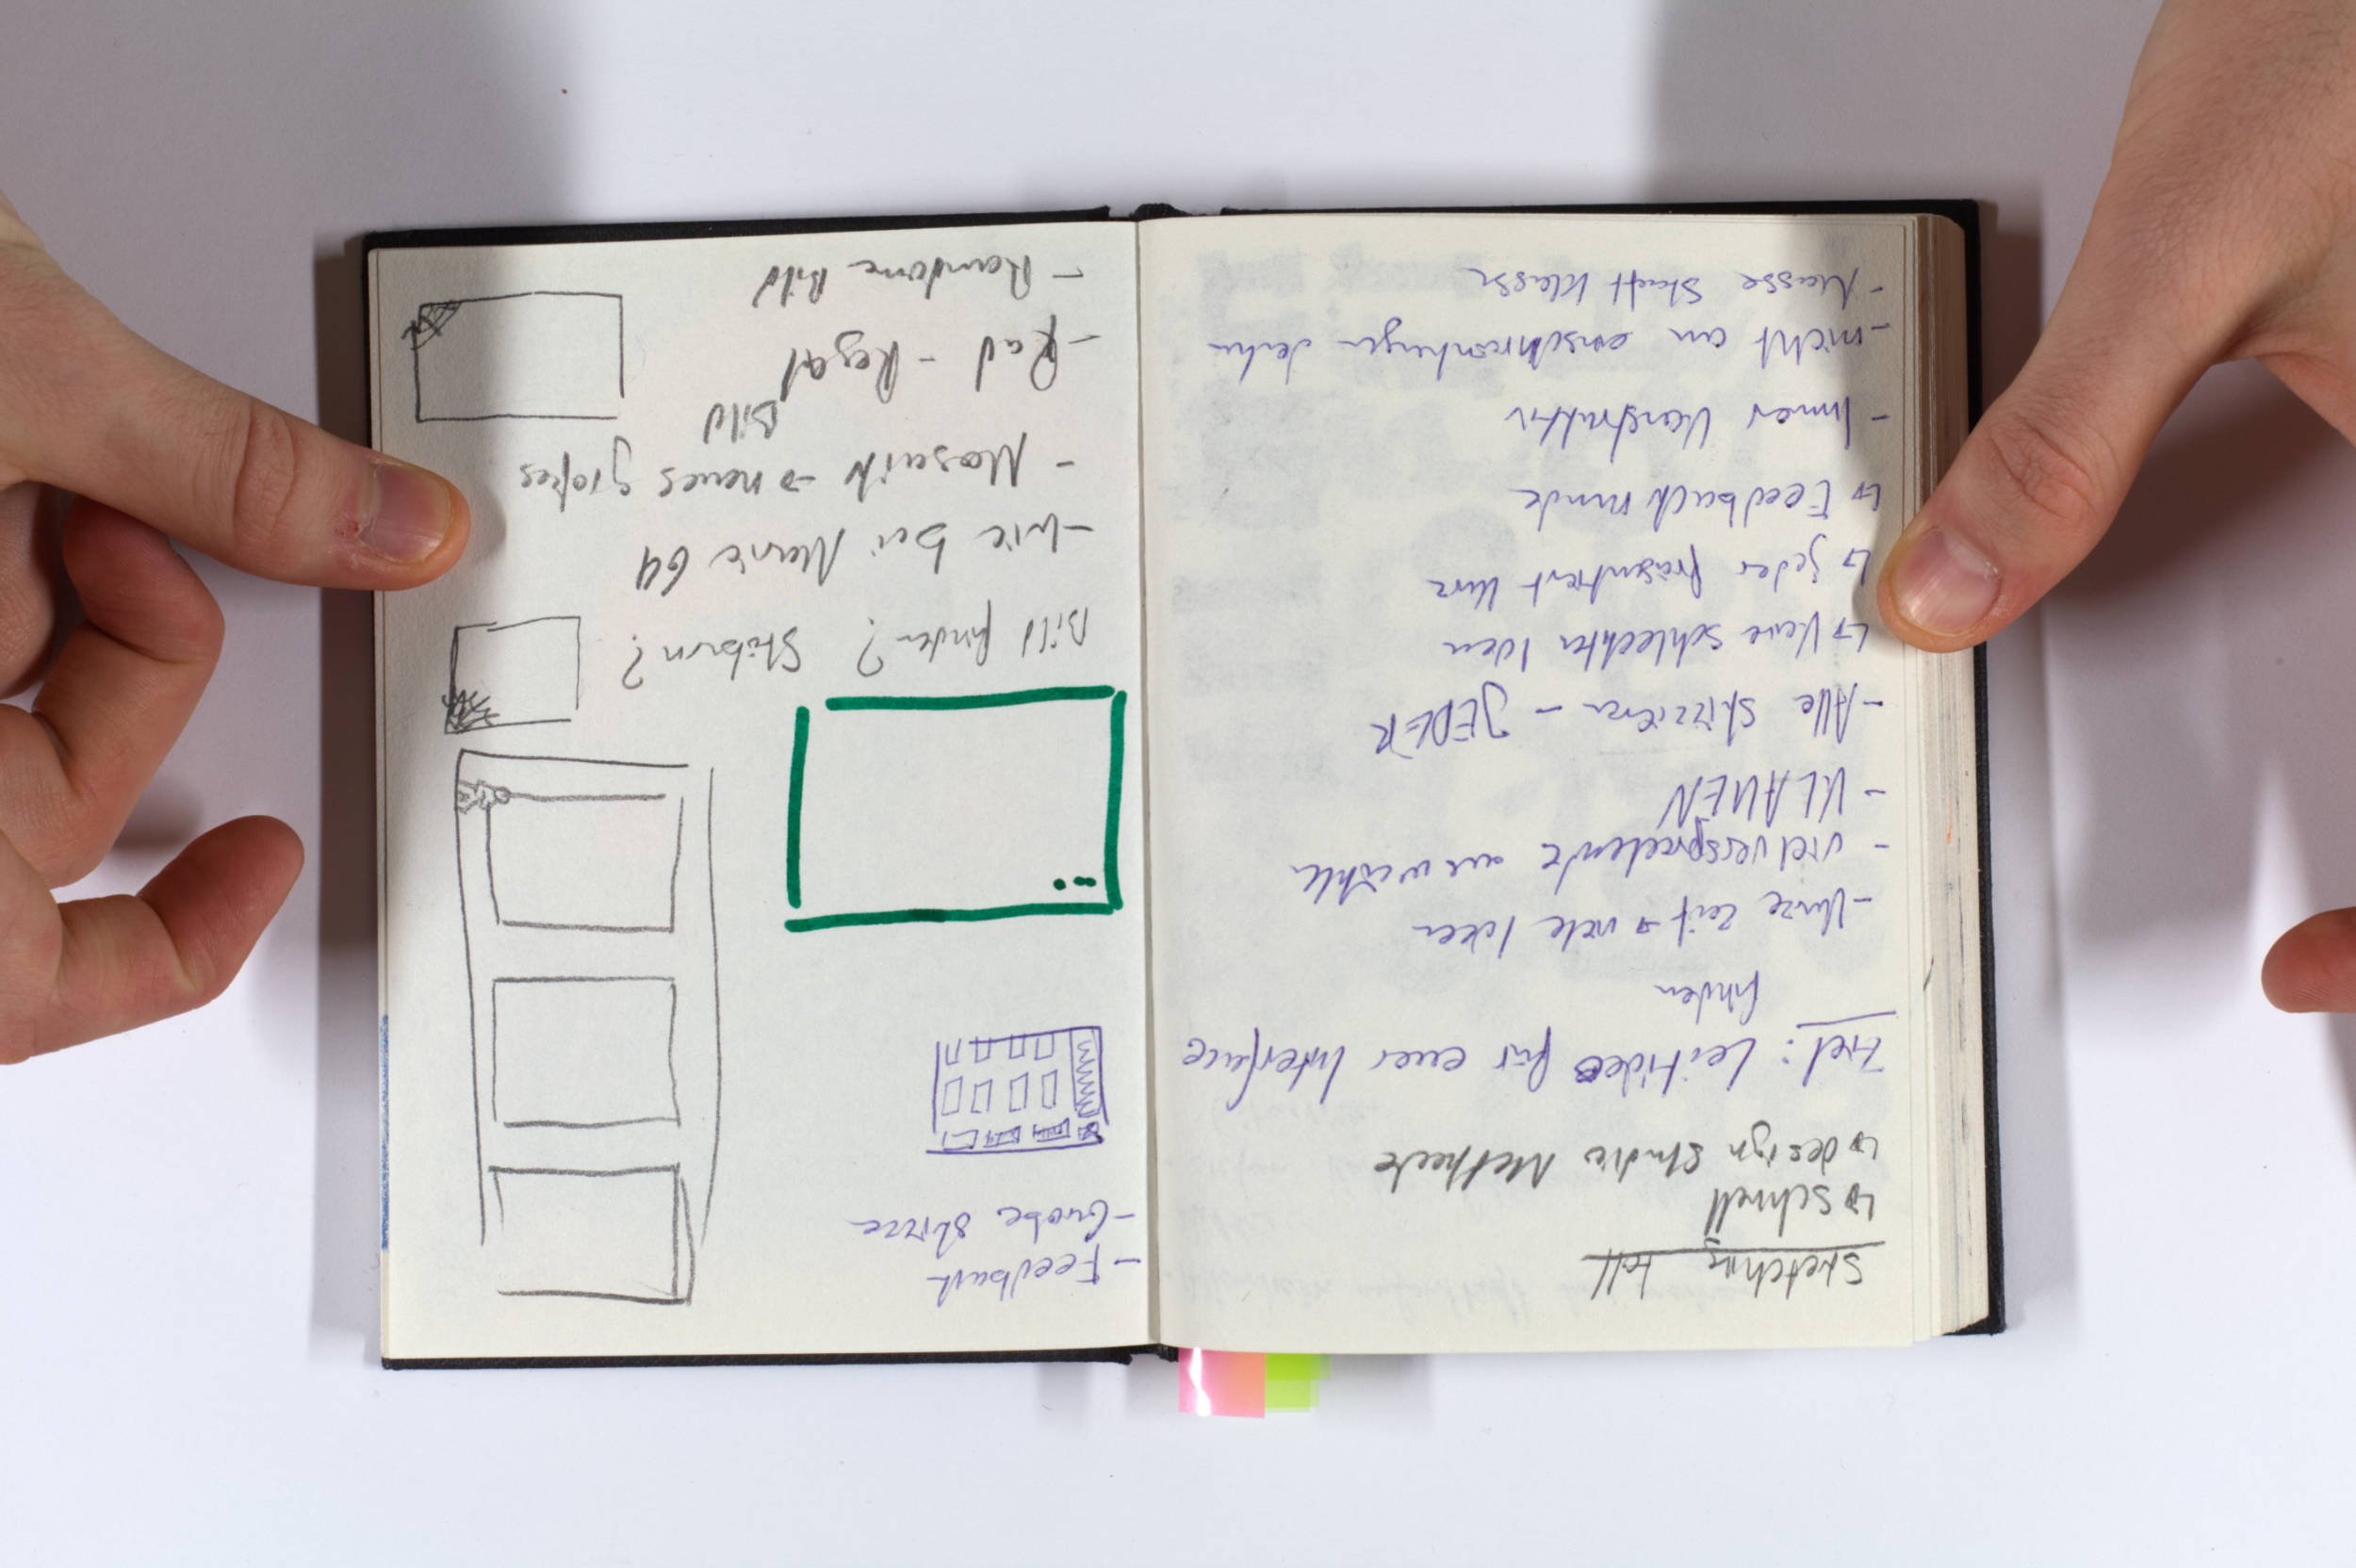 Sketching
↳ schnell
↳ design studio Methode
Ziel: Leitidee für einen Interface
finden
- Kurze Zeit → viele Ideen
- vielversprechende auswählen
- KLAUEN
- Alle skizzieren - JEDER
↳ Keine schlechten Ideen
↳ jeder präsentiert kurz
↳ Feedbackrunde
- Immer Konstruktiv
- nicht an einschränkungen denken
- Masse statt Klasse
- Feedback
- Grobe Skizze
Bild finden? Stöbern?
- wie bei Mario 64
- Mosaik → neues großes
Bild
- Rad - Regal
- Random Bild